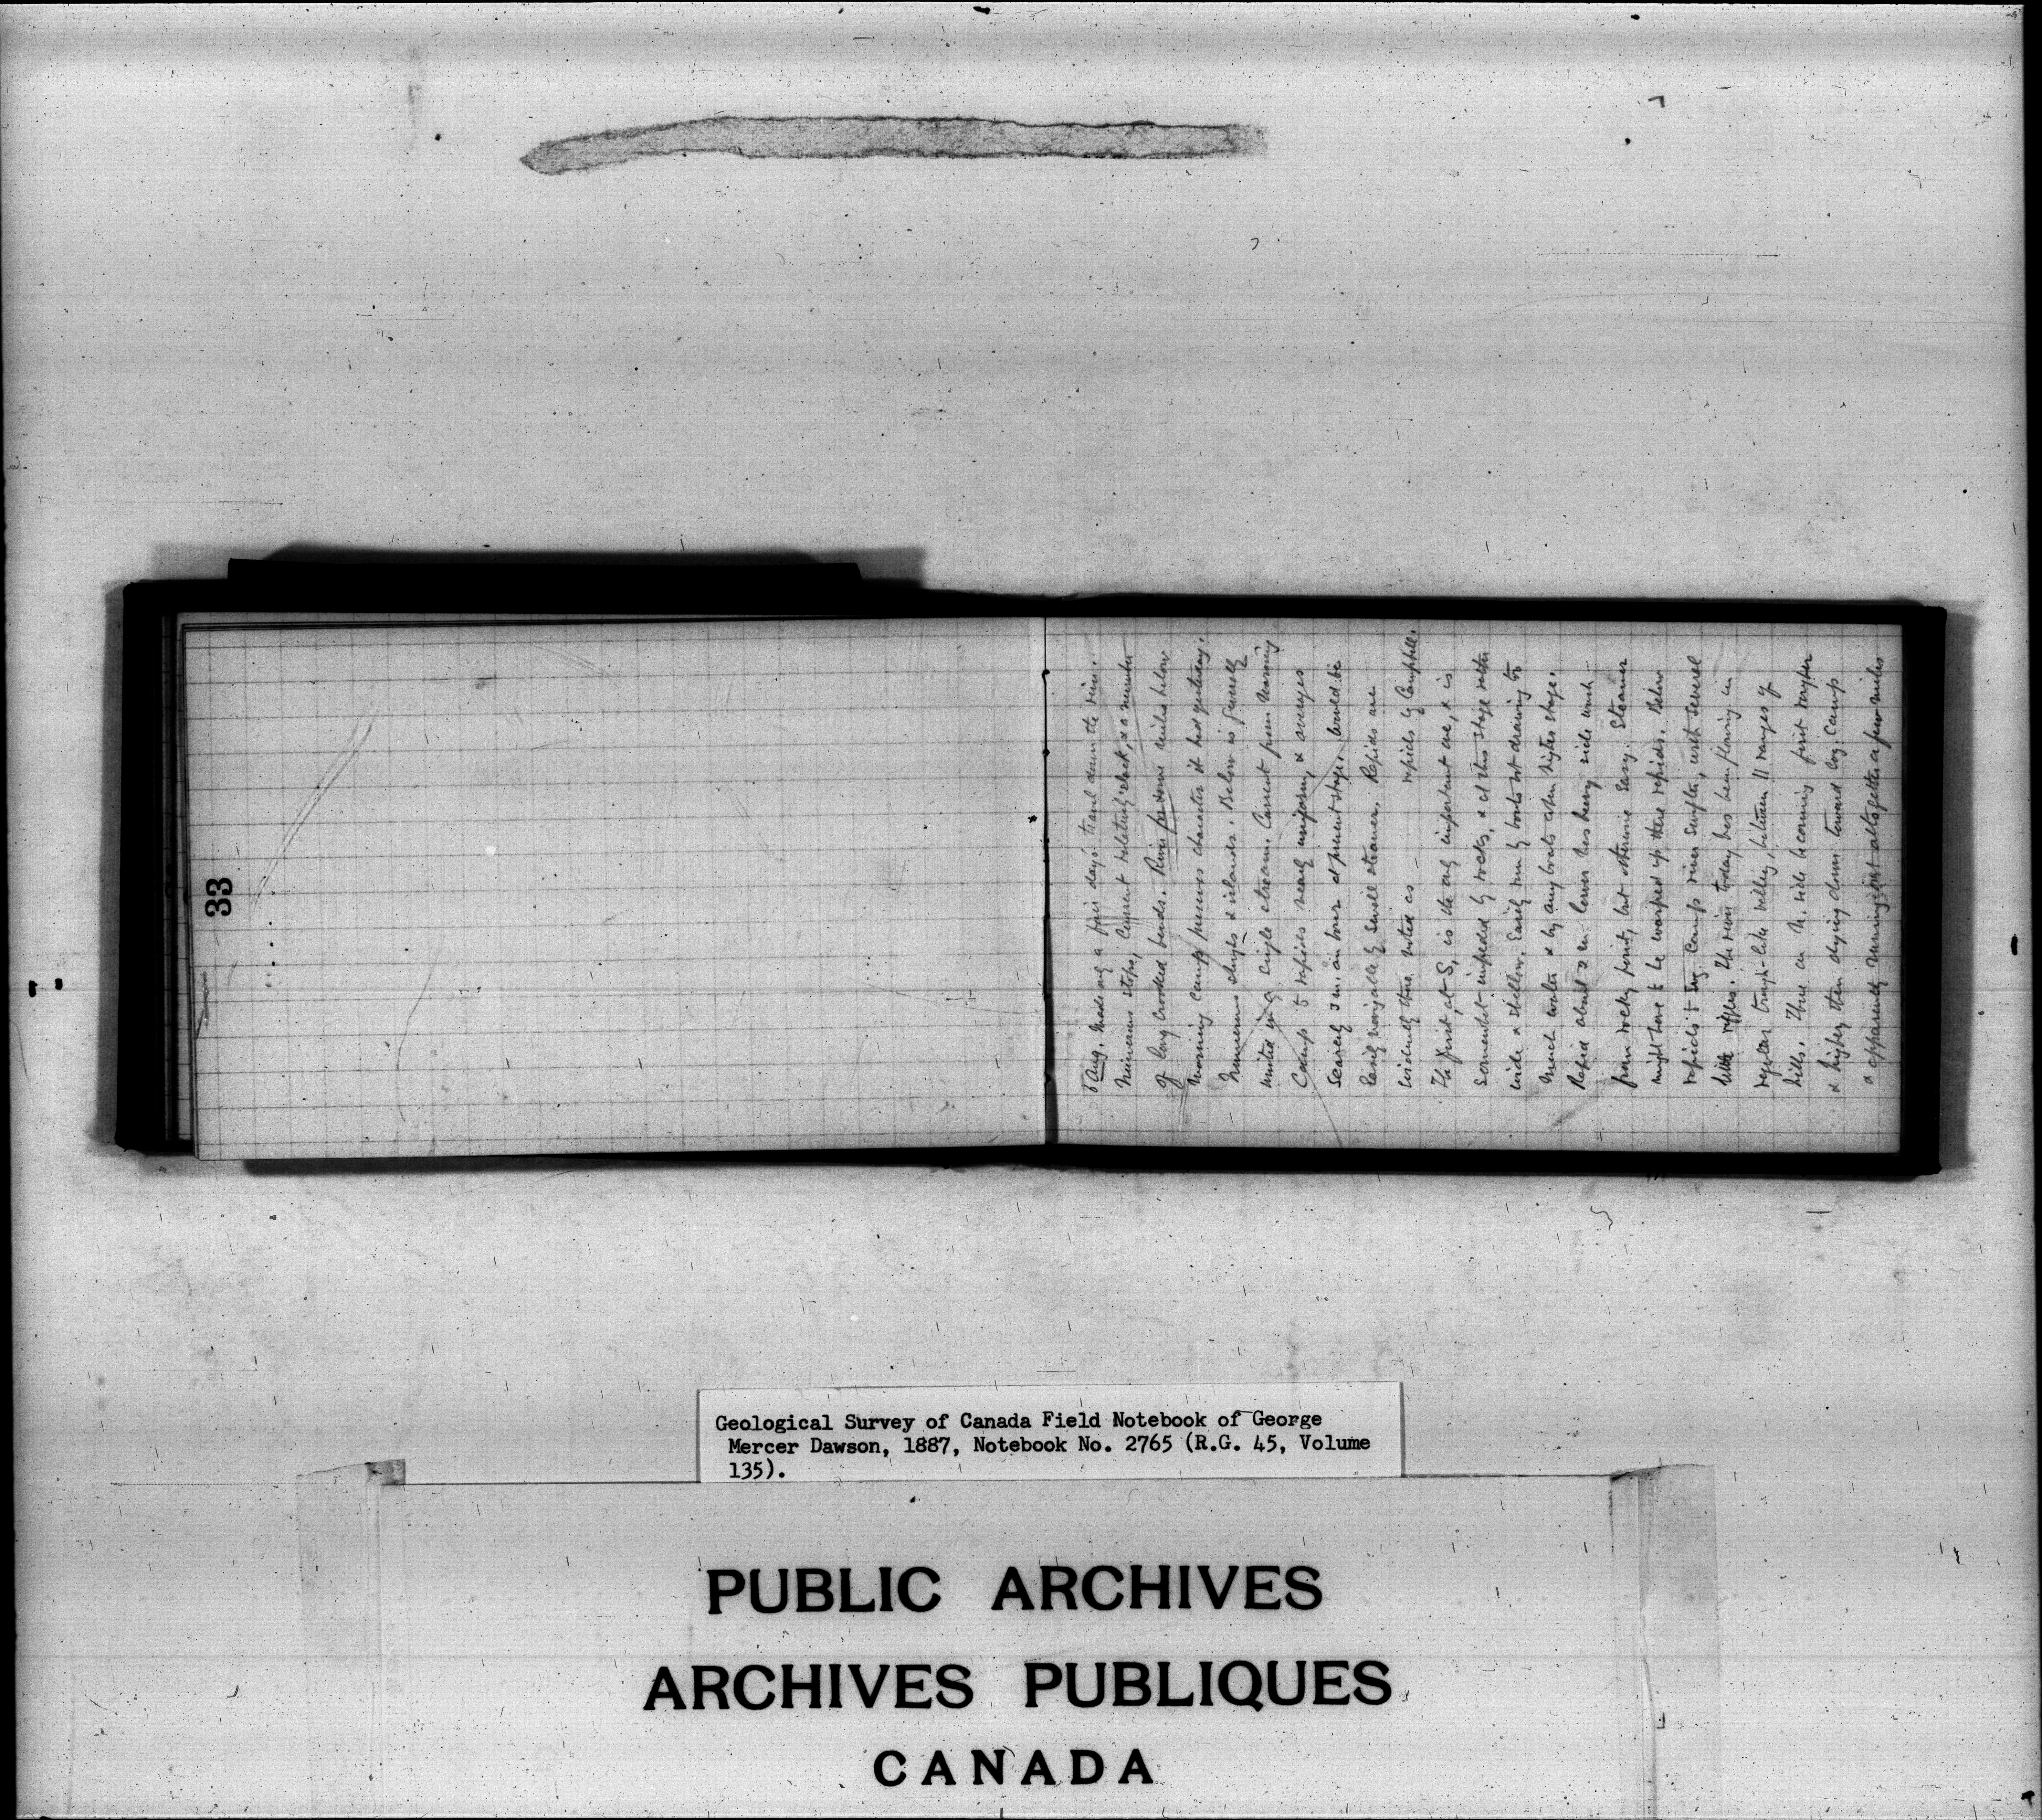 33
6 Aug. Made only a fair days travel down the river.
Numerous stops, Current relatively slack, & a number
of long crooked bends. River for some miles below
morning camp preserves character it had yesterday.
Numerous sloughs & islands. Below is generally
united in a single stream. Current from morning
Camp to rapids nearly uniform, & averages
scarcely 3 m. an hour at present stage. Would be
easily navigable by small steamer. Rapids are
evidently those noted as — rapids by Campbell.
The first, at S, is the only important one, & is
somewhat impeded by rocks, & at this stage rather
wide & shallow. Easily run by boats not drawing too
much water & by any boats at higher stage.
Rapid about 2 m. lower has heavy side wash
from rocky point, but otherwise easy. Steamer
might have to be warped up these rapids. Below
rapids to Camp river swifter, with several
little riffles. The river today has been flowing in
regular trough-like valley, between || ranges of
hills. Those on N. side becoming first rougher
& higher then dying down toward Camp
& apparently running out altogether a few miles
Geological Survey of Canada Field Notebook of George
Mercer Dawson, 1887, Notebook No. 2765 (R.G. 45, Volume
135).
PUBLIC ARCHIVES
ARCHIVES PUBLIQUES
CANADA